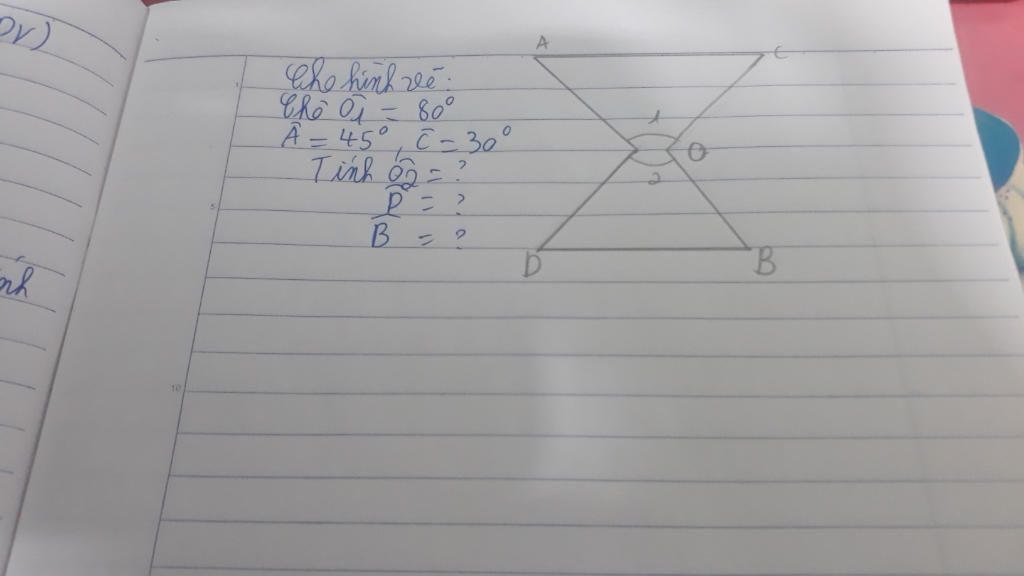 DV)
Cho hình vẽ:
Chô Ô1 = 80°
Â = 45°, Ĉ = 30°
Tính Ô2 = ?
D̂ = ?
B̂ = ?
A
C
1
O
2
D
B
ính
5
10